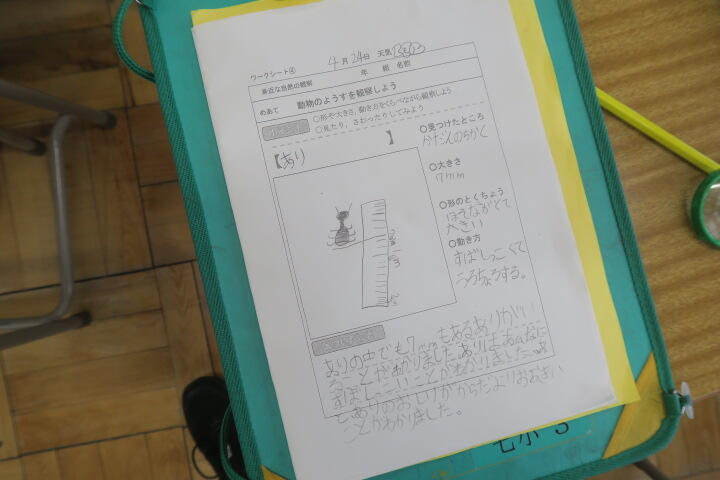 4月24日 天気
ワークシート④
身近な自然の観察 年 組 名前
めあて 動物のようすを観察しよう
○形や大きさ、動き方をくらべながら観察しよう
○見たり、さわったりしてみよう
【あり 】
○見つけたところ
かだんのちかく
○大きさ
7mm
○形のとくちょう
ほそながくて
大きい
○動き方
すばしっこくて
うろちょろする。
ありの中でも7mmもあるありがい
ることがわかりました。ありは
すばしっこいことがわかりました。
とありのおしりがからだよりおおきい
ことがわかりました。